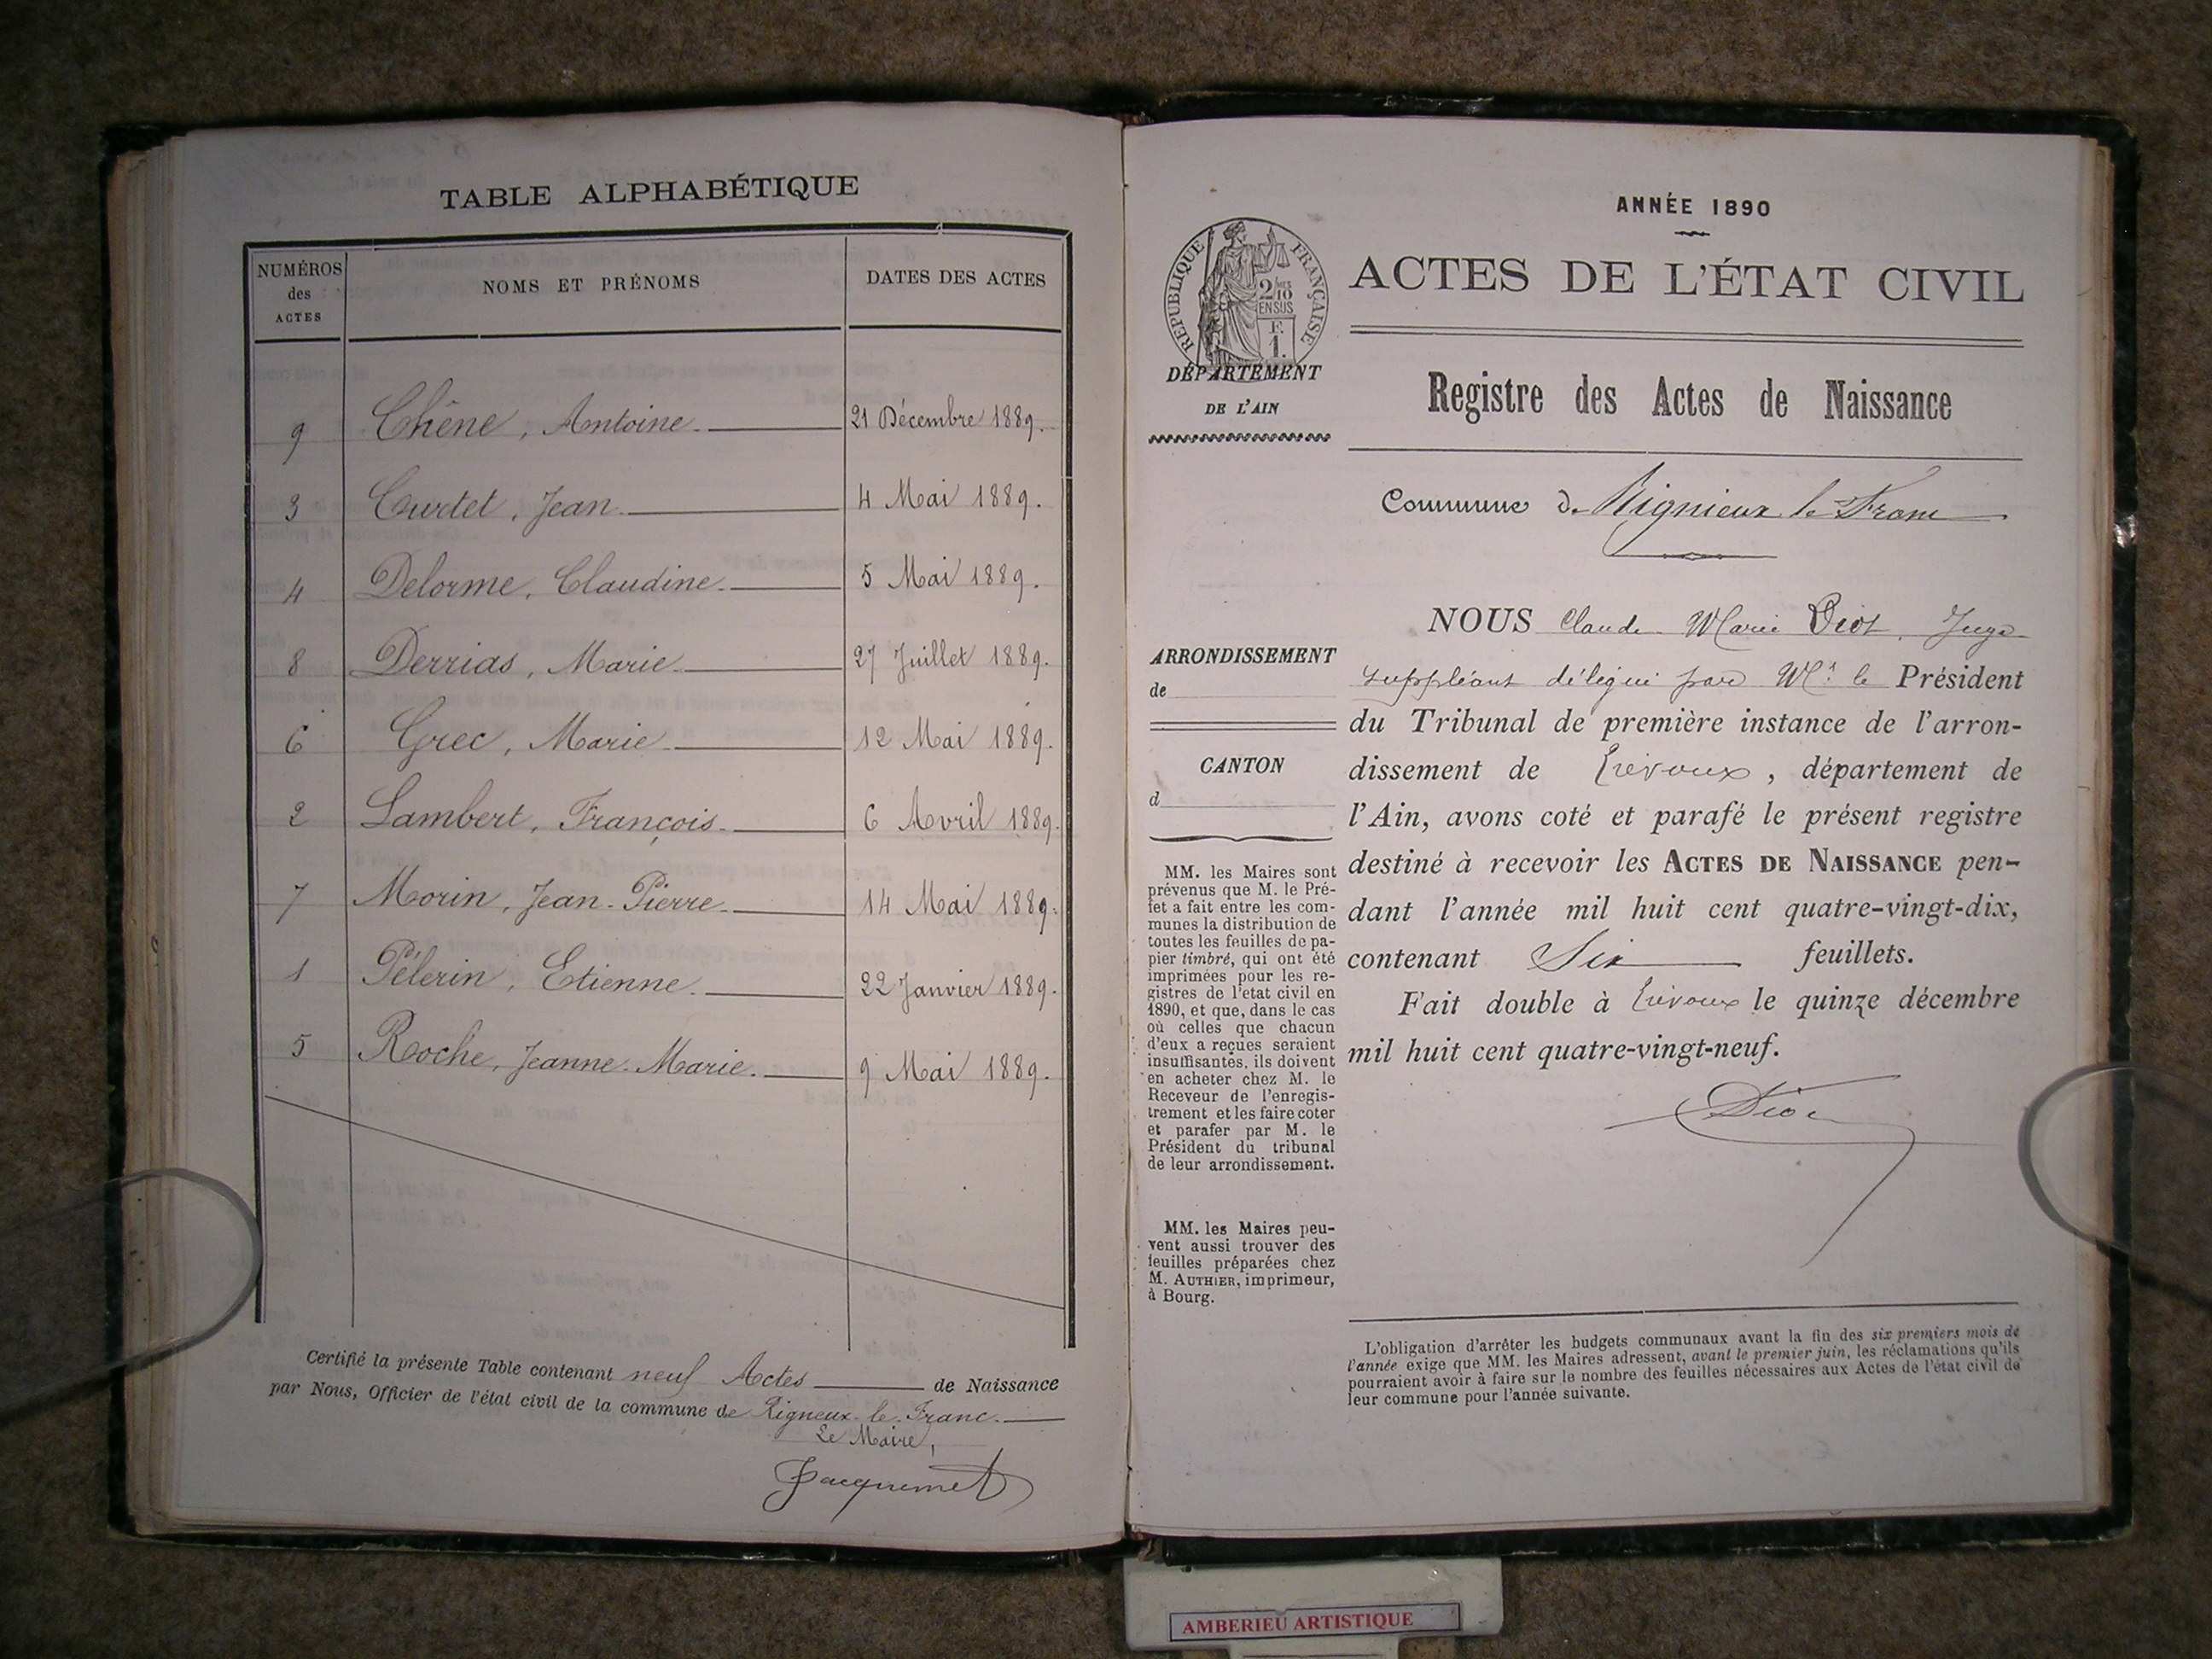 TABLE ALPHABÉTIQUE
NUMÉROS des ACTES NOMS ET PRÉNOMS DATES DES ACTES
9 Chêne, Antoine. 21 Décembre 1889.
3 Curtet, Jean. 4 Mai 1889.
4 Delorme, Claudine. 5 Mai 1889.
8 Derrias, Marie. 27 Juillet 1889.
6 Grec, Marie. 12 Mai 1889.
2 Lambert, François. 6 Avril 1889.
7 Morin, Jean-Pierre. 14 Mai 1889.
1 Pélerin, Etienne. 22 Janvier 1889.
5 Roche, Jeanne-Marie. 9 Mai 1889.
Certifié la présente Table contenant neuf Actes de Naissance
par Nous, Officier de l'état civil de la commune de Rigneux-le-Franc.
Le Maire,
Jacquemet
ANNÉE 1890
RÉPUBLIQUE FRANÇAISE
2/10 EN SUS
F. 1.
DÉPARTEMENT
DE L'AIN
ACTES DE L'ÉTAT CIVIL
Registre des Actes de Naissance
Commune de Rignieux le Franc
ARRONDISSEMENT
de
CANTON
d
MM. les Maires sont
prévenus que M. le Pré-
fet a fait entre les com-
munes la distribution de
toutes les feuilles de pa-
pier timbré, qui ont été
imprimées pour les re-
gistres de l'etat civil en
1890, et que, dans le cas
où celles que chacun
d'eux a reçues seraient
insuffisantes, ils doivent
en acheter chez M. le
Receveur de l'enregis-
trement et les faire coter
et parafer par M. le
Président du tribunal
de leur arrondissement.
MM. les Maires peu-
vent aussi trouver des
feuilles préparées chez
M. AUTHIER, imprimeur,
à Bourg.
NOUS Claude Marie Diot, Juge
suppléant délégué par Mr le Président
du Tribunal de première instance de l'arron-
dissement de Trévoux, département de
l'Ain, avons coté et parafé le présent registre
destiné à recevoir les ACTES DE NAISSANCE pen-
dant l'année mil huit cent quatre-vingt-dix,
contenant Six feuillets.
Fait double à Trévoux le quinze décembre
mil huit cent quatre-vingt-neuf.
Diot
L'obligation d'arrêter les budgets communaux avant la fin des six premiers mois de
l'année exige que MM. les Maires adressent, avant le premier juin, les réclamations qu'ils
pourraient avoir à faire sur le nombre des feuilles nécessaires aux Actes de l'état civil de
leur commune pour l'année suivante.
AMBERIEU ARTISTIQUE